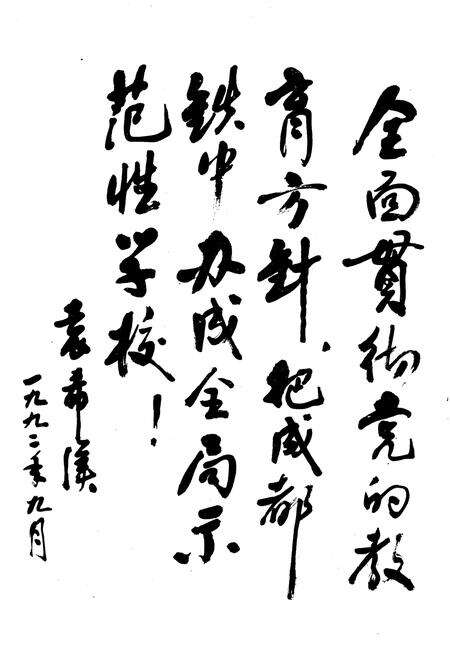 全面贯彻党的教
育方针，把成都
铁中办成全局示
范性学校！
袁希汉
一九九二年九月